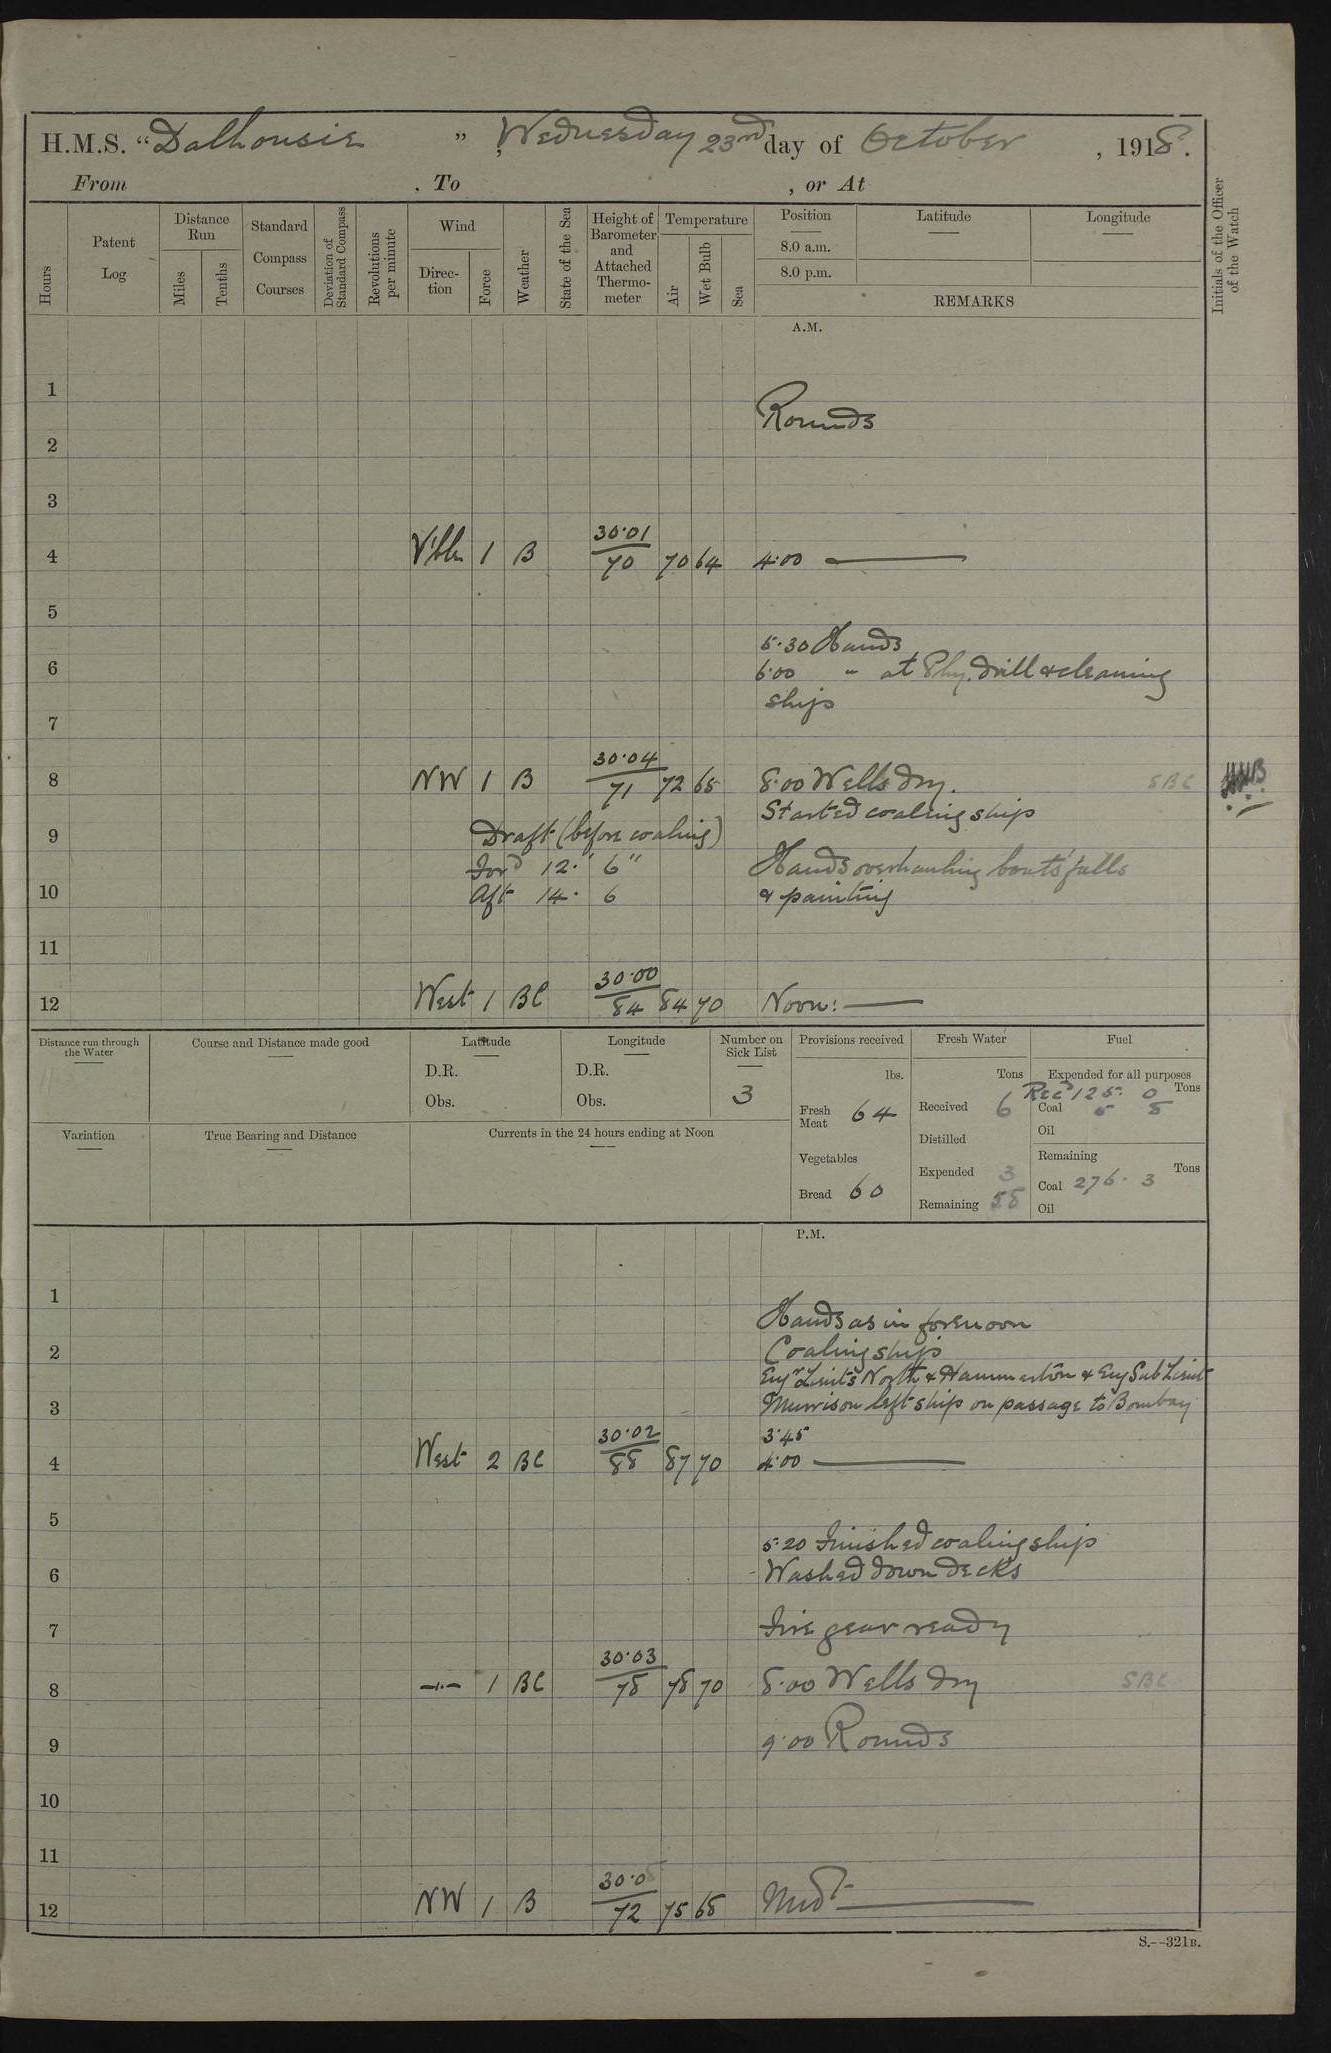 H.M.S. "Dalhousie", Wednesday 23rd day of October, 1918.
From , To , or At
Hours
Patent Log
Distance Run
Miles
Tenths
Standard Compass Courses
Deviation of Standard Compass
Revolutions per minute
Wind
Direction
Force
Weather
State of the Sea
Height of Barometer and Attached Thermometer
Temperature
Air
Wet Bulb
Sea
Position
8.0 a.m.
8.0 p.m.
Latitude
Longitude
REMARKS
Initials of the Officer of the Watch
A.M.
1
Rounds
2
3
4 V'ble 1 B 30.01 70 70 64 4.00
5
5.30 Hands
6 6.00 " at Phy. drill & cleaning
ship
7
8 NW 1 B 30.04 71 72 68 8.00 Wells dry. SBC
Started coaling ship
9 Draft (before coaling)
For'd 12.' 6" Hands overhauling boats' falls
10 Aft 14. 6 & painting
11
12 West 1 BC 30.00 84 84 70 Noon:
Distance run through the Water
Course and Distance made good
Latitude
D.R.
Obs.
Longitude
D.R.
Obs.
Number on Sick List
3
Provisions received
lbs.
Fresh Meat 64
Vegetables
Bread 60
Fresh Water
Tons
Received 6
Distilled
Expended 3
Remaining 58
Fuel
Expended for all purposes
Tons
Rec'd 125. 0
Coal 5 8
Oil
Remaining
Tons
Coal 276. 3
Oil
Variation
True Bearing and Distance
Currents in the 24 hours ending at Noon
P.M.
1
Hands as in forenoon
2 Coaling ship
Eng'r Lieuts North & Hammerton & Eng Sub Lieut
3 Murrison left ship on passage to Bombay
3.45
4 West 2 BC 30.02 88 87 70 4.00
5
5.20 Finished coaling ship
6 Washed down decks
7 Fire gear ready
8 -"- 1 BC 30.03 78 78 70 8.00 Wells dry SBC
9 9.00 Rounds
10
11
12 NW 1 B 30.05 72 75 68 Mid't
S.--321B.